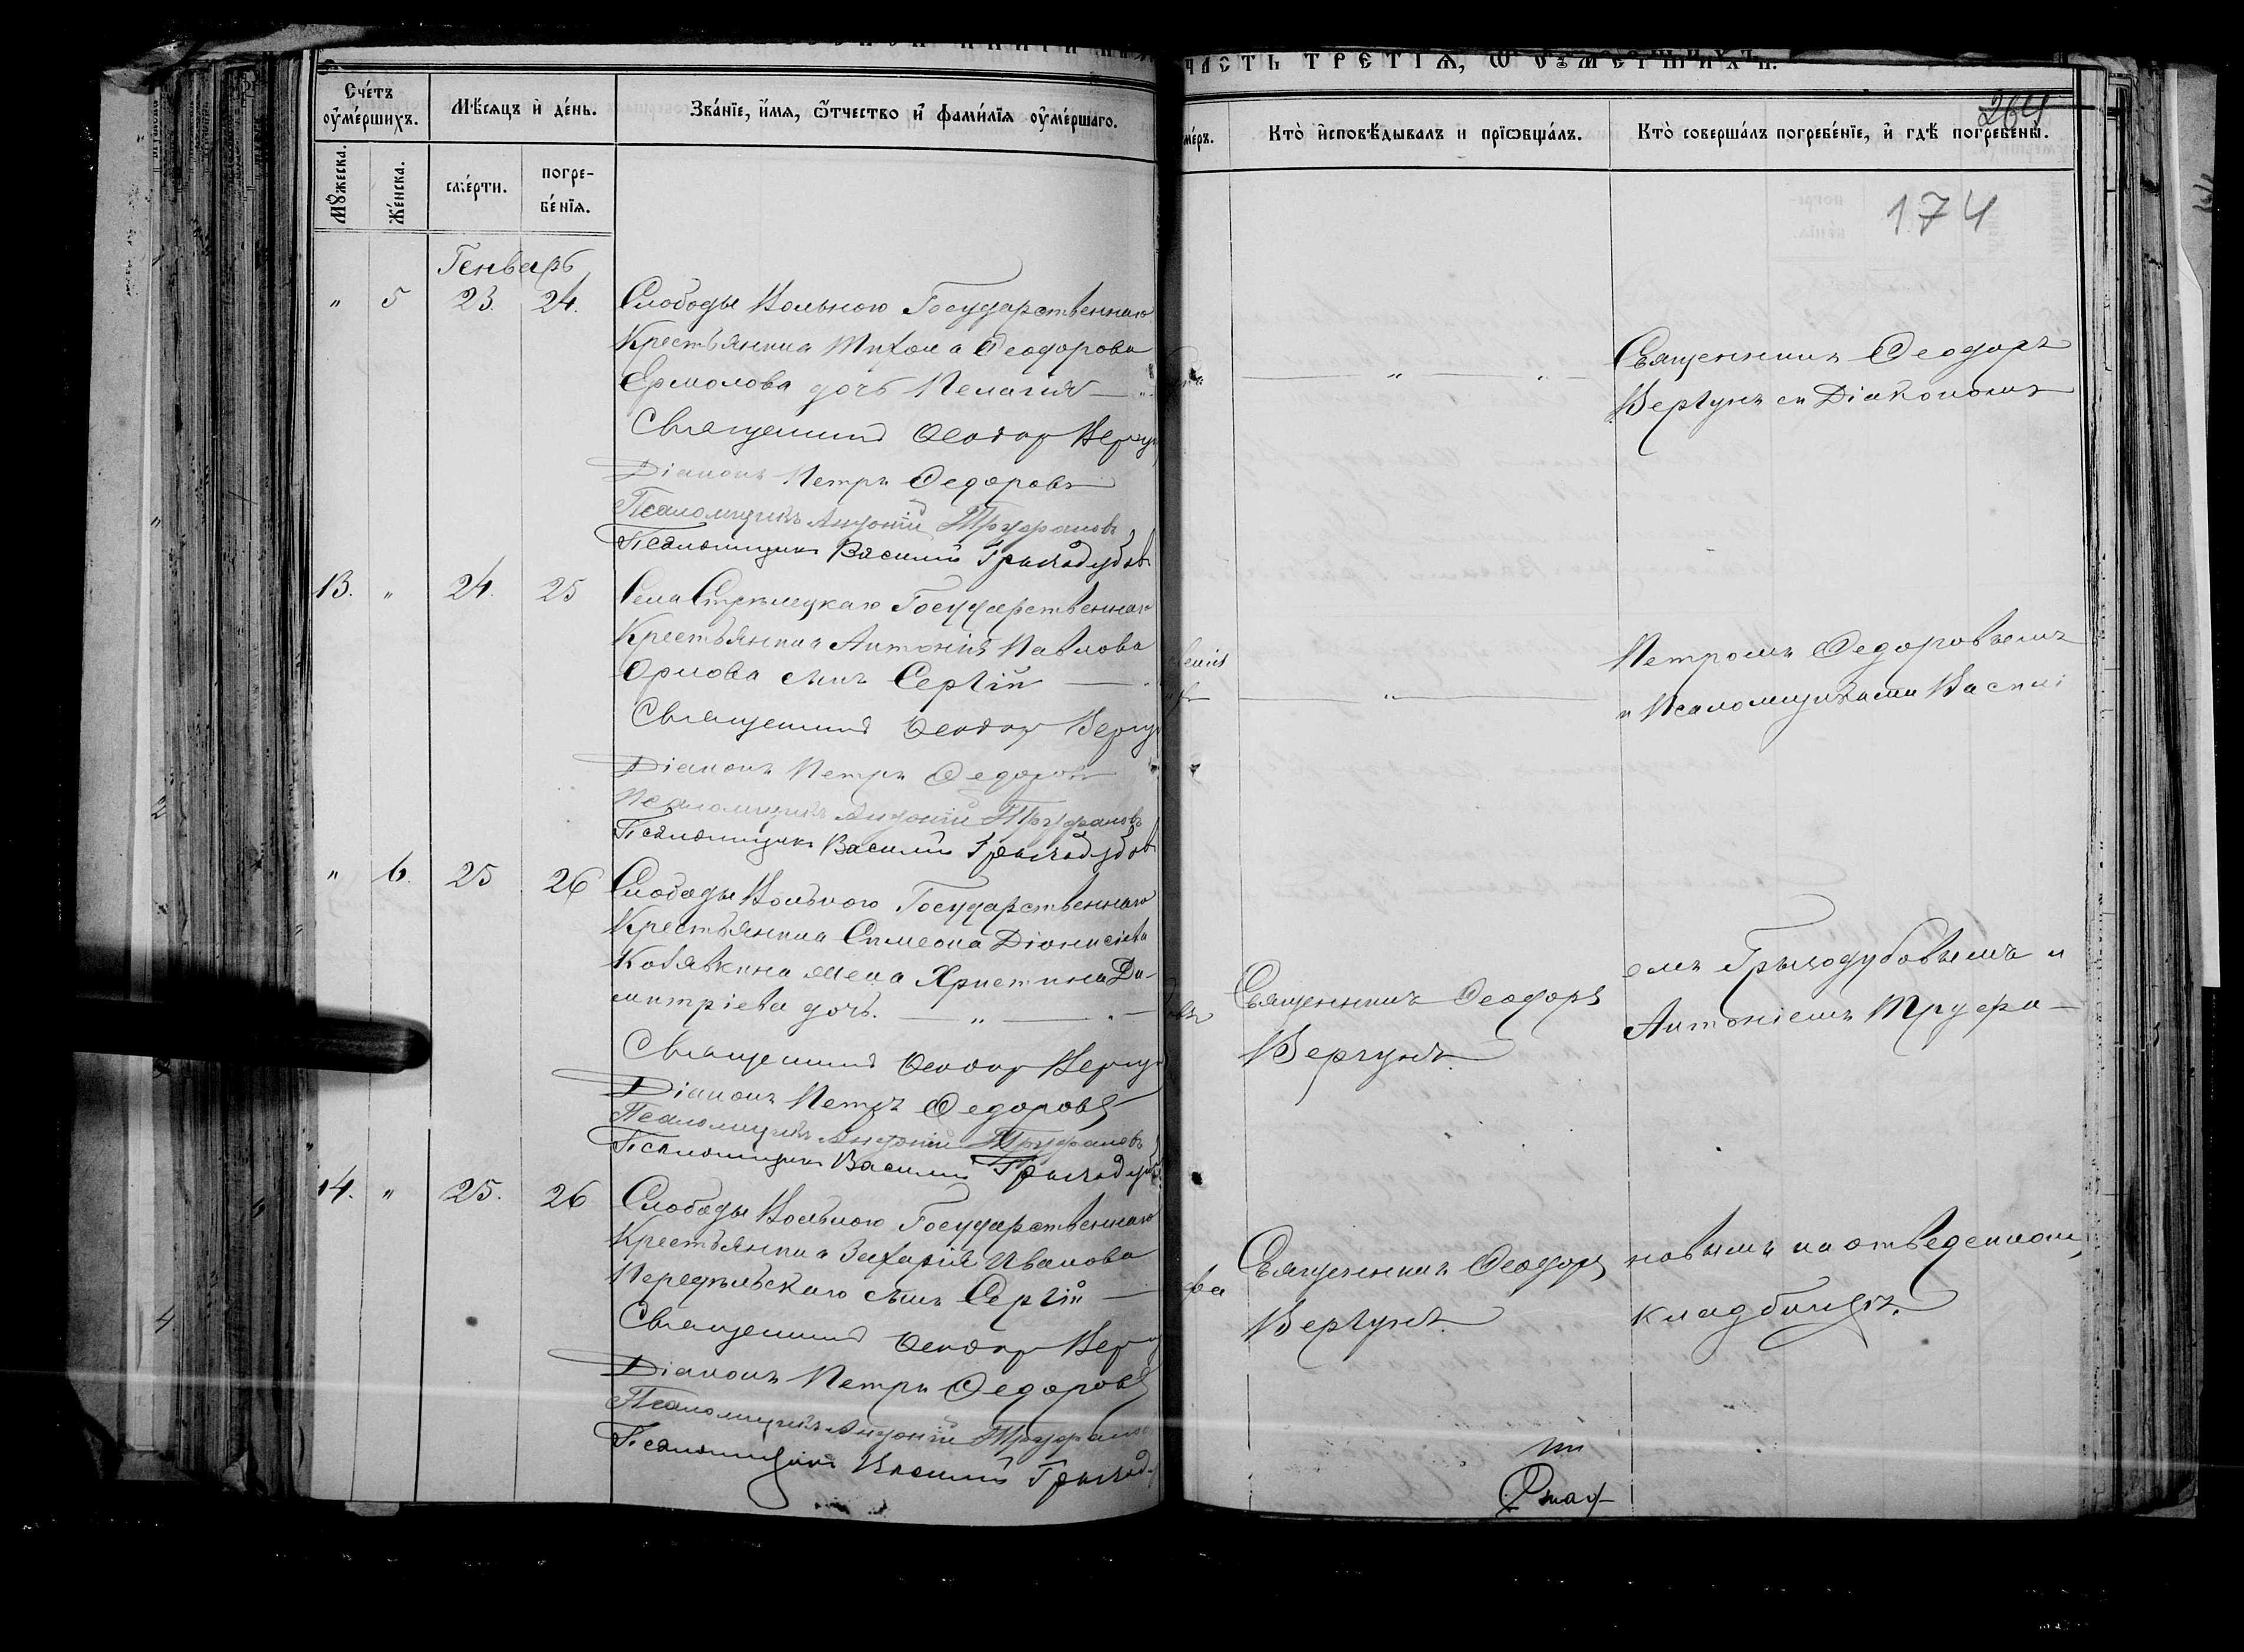 ЧАСТЬ ТРЕТІѦ, Ѡ ОУМЕРШИХЪ.
Сче́тъ оу҆ме́ршихъ.
Мѣ́сяцъ и҆ де́нь.
Зва́нїе, и҆́мѧ, ѻ҆́тчество и҆ фами́лїѧ оу҆ме́ршагѡ.
Мꙋ́жеска.
Же́нска.
сме́рти.
погре-
бе́нїѧ.
Генварь
" 5 23. 24.
Слободы Вольного Государственнаго
Крестьянина Тихона Ѳеодорова
Ермолова дочь Пелагия
Священник Ѳеодор Вергун
Діаконъ Петръ Ѳедоровъ
Псаломщикъ Антоній Труфановъ
Псаломщикъ Василій Грызодубов
13. " 24. 25
Села Стрѣлецкаго Государственнаго
Крестьянина Антонія Павлова
Орлова сынъ Сергій
Священник Ѳеодор Вергун
Діаконъ Петръ Ѳедоров
Псаломщикъ Антоній Труфановъ
Псаломщикъ Василій Грызодубов
" 6. 25 26
Слободы Вольного Государственнаго
Крестьянина Симеона Діонисіева
Кобявкина жена Христина Ди-
митріева дочь.
Священник Ѳеодор Вергун
Діаконъ Петръ Ѳедоровъ
Псаломщикъ Антоній Труфановъ
Псаломщикъ Василій Грызодуб
14. " 25. 26
Слободы Вольного Государственнаго
Крестьянина Захарія Иванова
Передѣльскаго сынъ Сергій
Священник Ѳеодор Вер
Діаконъ Петръ Ѳедоровъ
Псаломщикъ Антоній Труфанов
Псаломщикъ Василій Грызод
264
ме́ръ.
Кто̀ и҆сповѣ́дывалъ и прїѡбща́лъ.
Кто̀ соверша́лъ погребе́нїе, и҆ гдѣ̀ погребены̀.
174
Священникъ Ѳеодоръ
Вергунъ съ Діакономъ
Петромъ Ѳедоровымъ
и Псаломщиками Васили
емъ Грызодубовымъ и
Антоніемъ Труфа-
новымъ на отведенном
кладбищѣ.
Священникъ Ѳеодоръ
Вергунъ.
Священникъ Ѳеодоръ
Вергунъ.